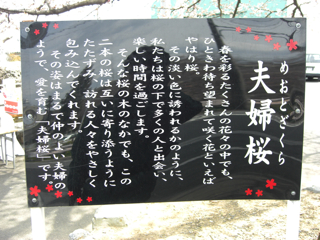 めおとざくら
夫婦桜
春を彩るたくさんの花々の中でも、
ひときわ待ち望まれて咲く花といえば
やはり桜。
その淡い色に誘われるかのように、
私たちは桜の下で多くの人と出会い、
楽しい時間を過ごします。
そんな桜の木のなかでも、この
二本の桜は互いに寄り添うように
たたずみ、訪れる人々をやさしく
包み込んでくれます。
その姿はまるで仲のよい夫婦の
ようで、愛を育む「夫婦桜」です。